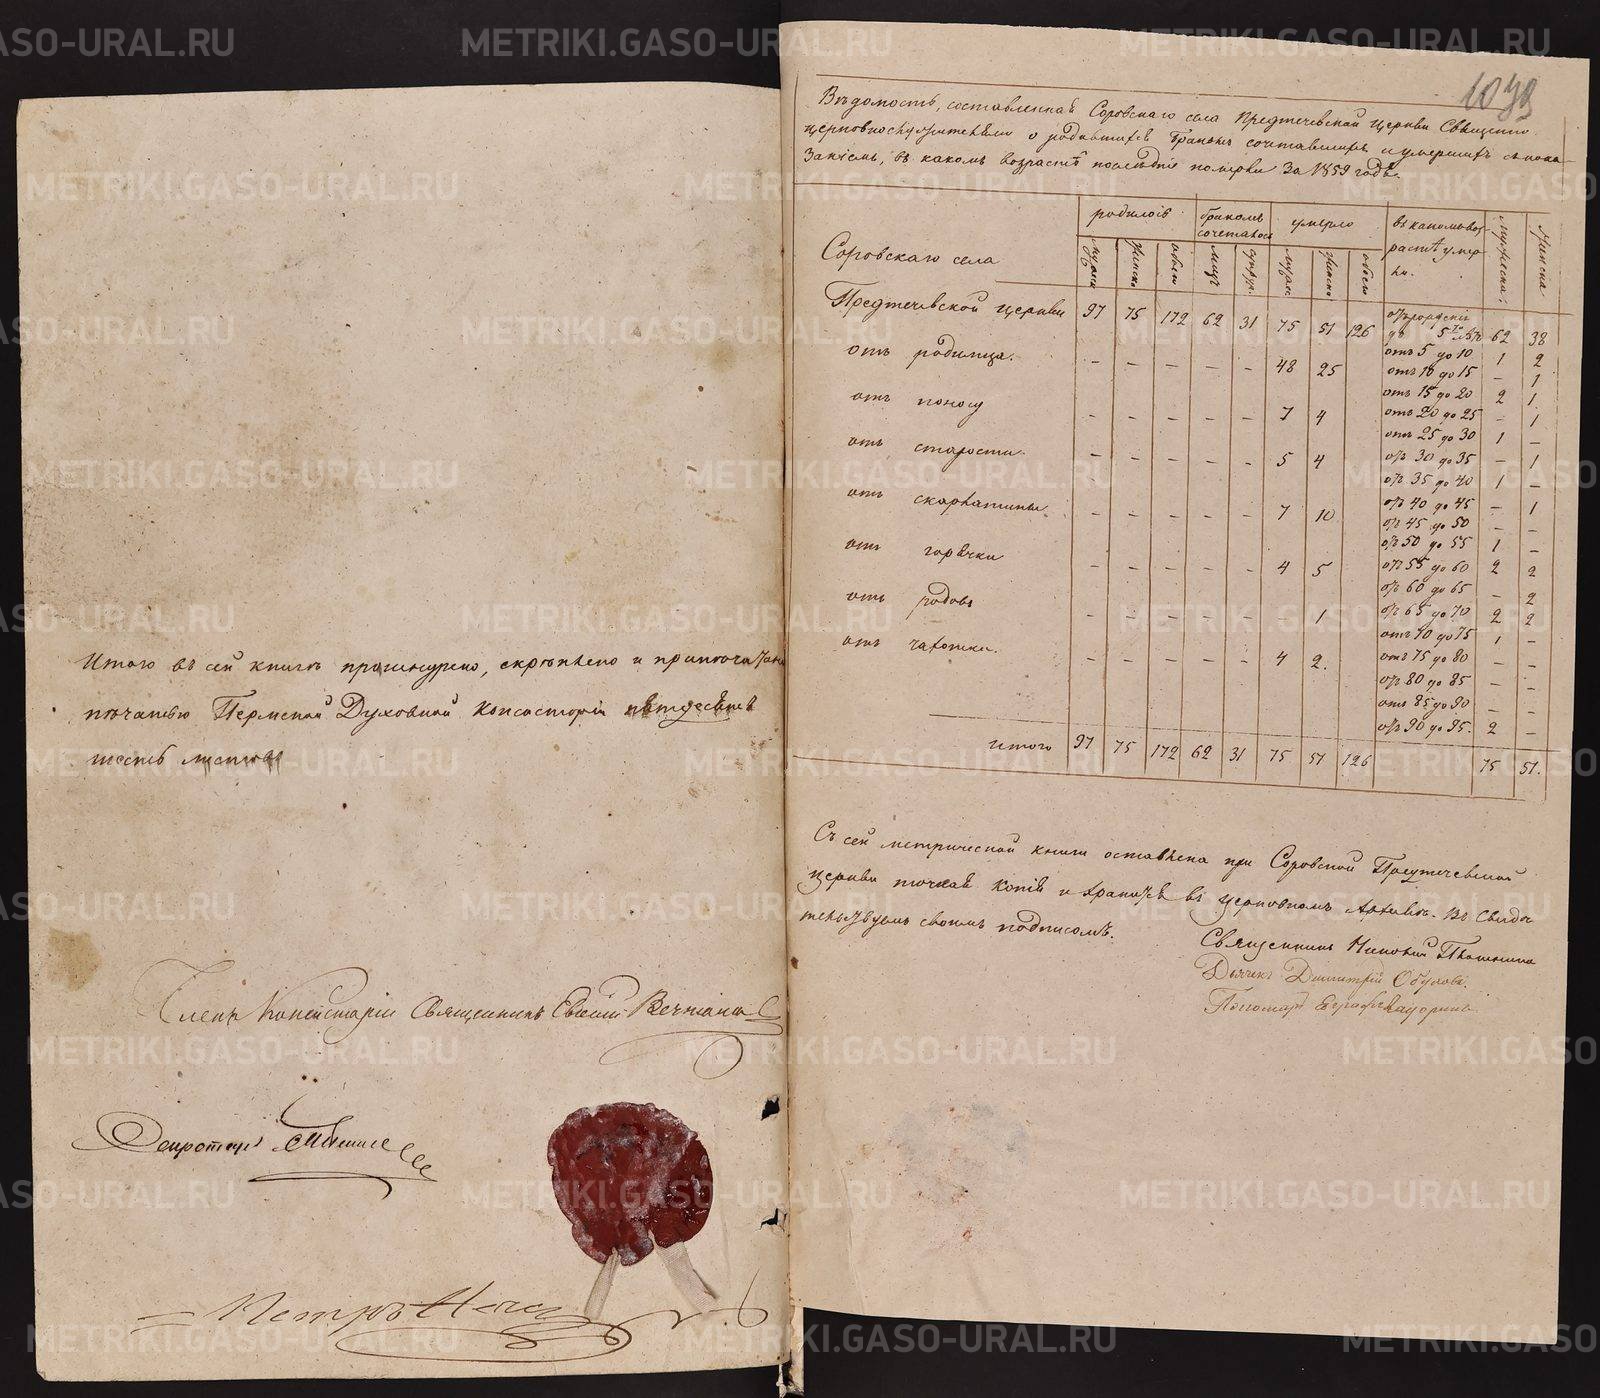 Итого въ сей книгѣ прошнурено, скрѣплено и припечатано
печатью Пермской Духовной Консисторіи пятдесятъ
шесть листовъ
Членъ Консисторіи Священникъ Евгеній
Секретарь
Петръ
Вѣдомость, составленная Соровскаго села Предтечевской церкви Священно
церковнослужителями о родившихся бракомъ сочетавшихъ и умершихъ съ пока-
заніемъ, въ какомъ возрастѣ послѣдніе померли за 1859 годъ.
Соровскаго села родилось бракомъ сочеталось умерло въ какомъ воз-
растѣ умер-
ли.
мужеска женска обоего лицъ супруж. мужес. женска обоего мужеска женска
Предтечевской церкви 97 75 172 62 31 75 51 126 отъ рожденія
до 5ти лѣтъ 62 38
отъ 5 до 10 1 2
отъ родимца. – – – – – 48 25 отъ 10 до 15 – 1
отъ 15 до 20 2 1
отъ поносу – – – – – 7 4 отъ 20 до 25 – 1
отъ 25 до 30 1 –
отъ старости – – – – – 5 4 отъ 30 до 35 – 1
отъ 35 до 40 1 –
отъ скарлатины – – – – – 7 10 отъ 40 до 45 – 1
отъ 45 до 50 – –
отъ 50 до 55 1 –
отъ горячки – – – – – 4 5 отъ 55 до 60 2 2
отъ 60 до 65 – 2
отъ родовъ – – – – – – 1 отъ 65 до 70 2 2
отъ 70 до 75 1 –
отъ чахотки. – – – – – 4 2. отъ 75 до 80 – –
отъ 80 до 85 – –
отъ 85 до 90 – –
отъ 90 до 95. 2 –
итого 97 75 172 62 31 75 51 126 75 51.
Съ сей метрической книги оставлена при Соровской Предтечевской
церкви точная копія и хранится въ церковномъ Архивѣ. Въ свидѣ
тельствуемъ своимъ подписомъ.
Священникъ
Дьячекъ Димитрій
Пономарь
METRIKI.GASO-URAL.RU